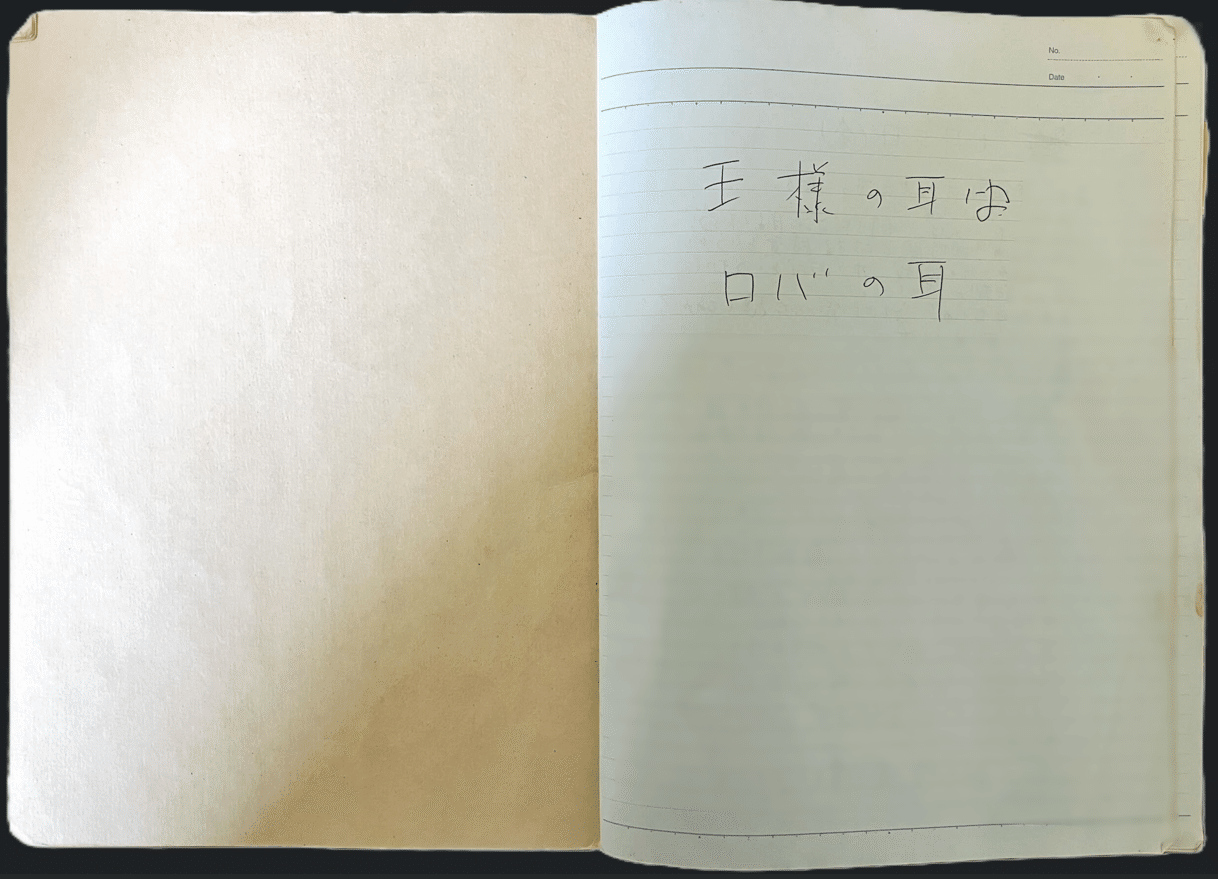 No.
Date
王様の耳は
ロバの耳